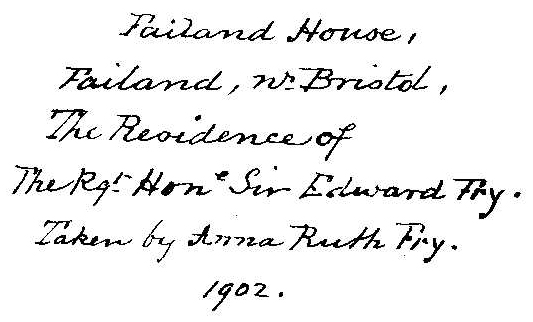 Failand House,
Failand, nr Bristol,
The Residence of
The Rgt Hone Sir Edward Fry.
Taken by Anna Ruth Fry.
1902.